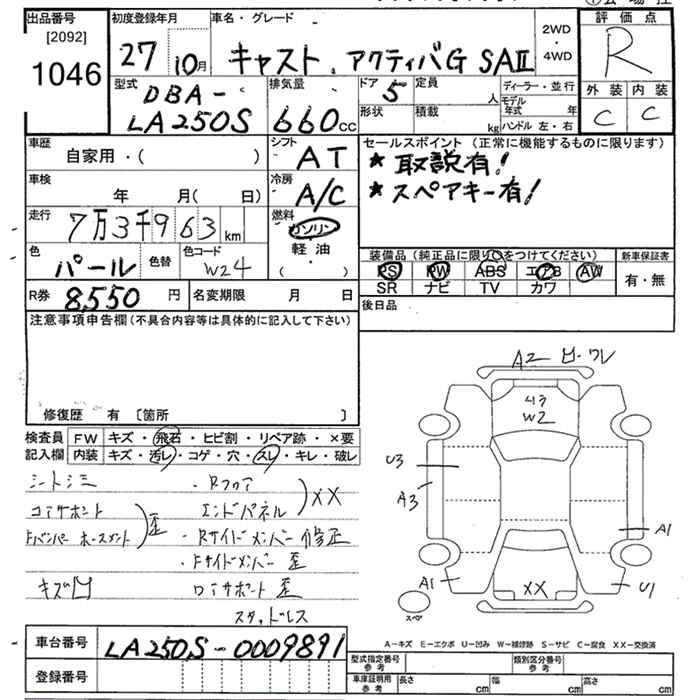 出品番号
[2092]
1046
初度登録年月
27 10月
車名・グレード
キャスト アクティバG SAⅡ
2WD
・
4WD
評価点
R
外装 内装
C C
型式
DBA-
LA250S
排気量
660cc
ドア
5
形状
定員
人
積載
kg
ディーラー・並行
モデル年式 年
ハンドル 左・右
車歴
自家用・( )
シフト
AT
車検
年 月( 日)
冷房
A/C
走行
7万3千963km
燃料
ガソリン
軽油
( ・ )
色
パール
色替
色コード
W24
R券
8,550円
名変期限 月 日
セールスポイント (正常に機能するものに限ります)
★取説有!
★スペアキー有!
装備品 (純正品に限り○をつけてください)
PS PW ABS エアB AW
SR ナビ TV カワ
新車保証書
有・無
後日品
注意事項申告欄(不具合内容等は具体的に記入して下さい)
修復歴 有 〔箇所 〕
検査員記入欄
FW キズ・飛石・ヒビ割・リペア跡・×要
内装 キズ・汚レ・コゲ・穴・スレ・キレ・破レ
シートシミ
コアサポート
Fバンパーホースメント
歪
キズ凹
・Rフロア
エンドパネル
XX
・Rサイドメンバー修正
・Fサイドメンバー歪
ロアサポート歪
スタッドレス
A2 凹・ワレ
U3
W2
U3
A3
A1
A1
XX
U1
スペア
A-キズ E-エクボ U-凹み W-補修跡 S-サビ C-腐食 XX-交換済
車台番号
LA250S-0009891
登録番号
型式指定番号
参考
類別区分番号
参考
車庫証明用
参考
長さ cm
幅 cm
高さ cm